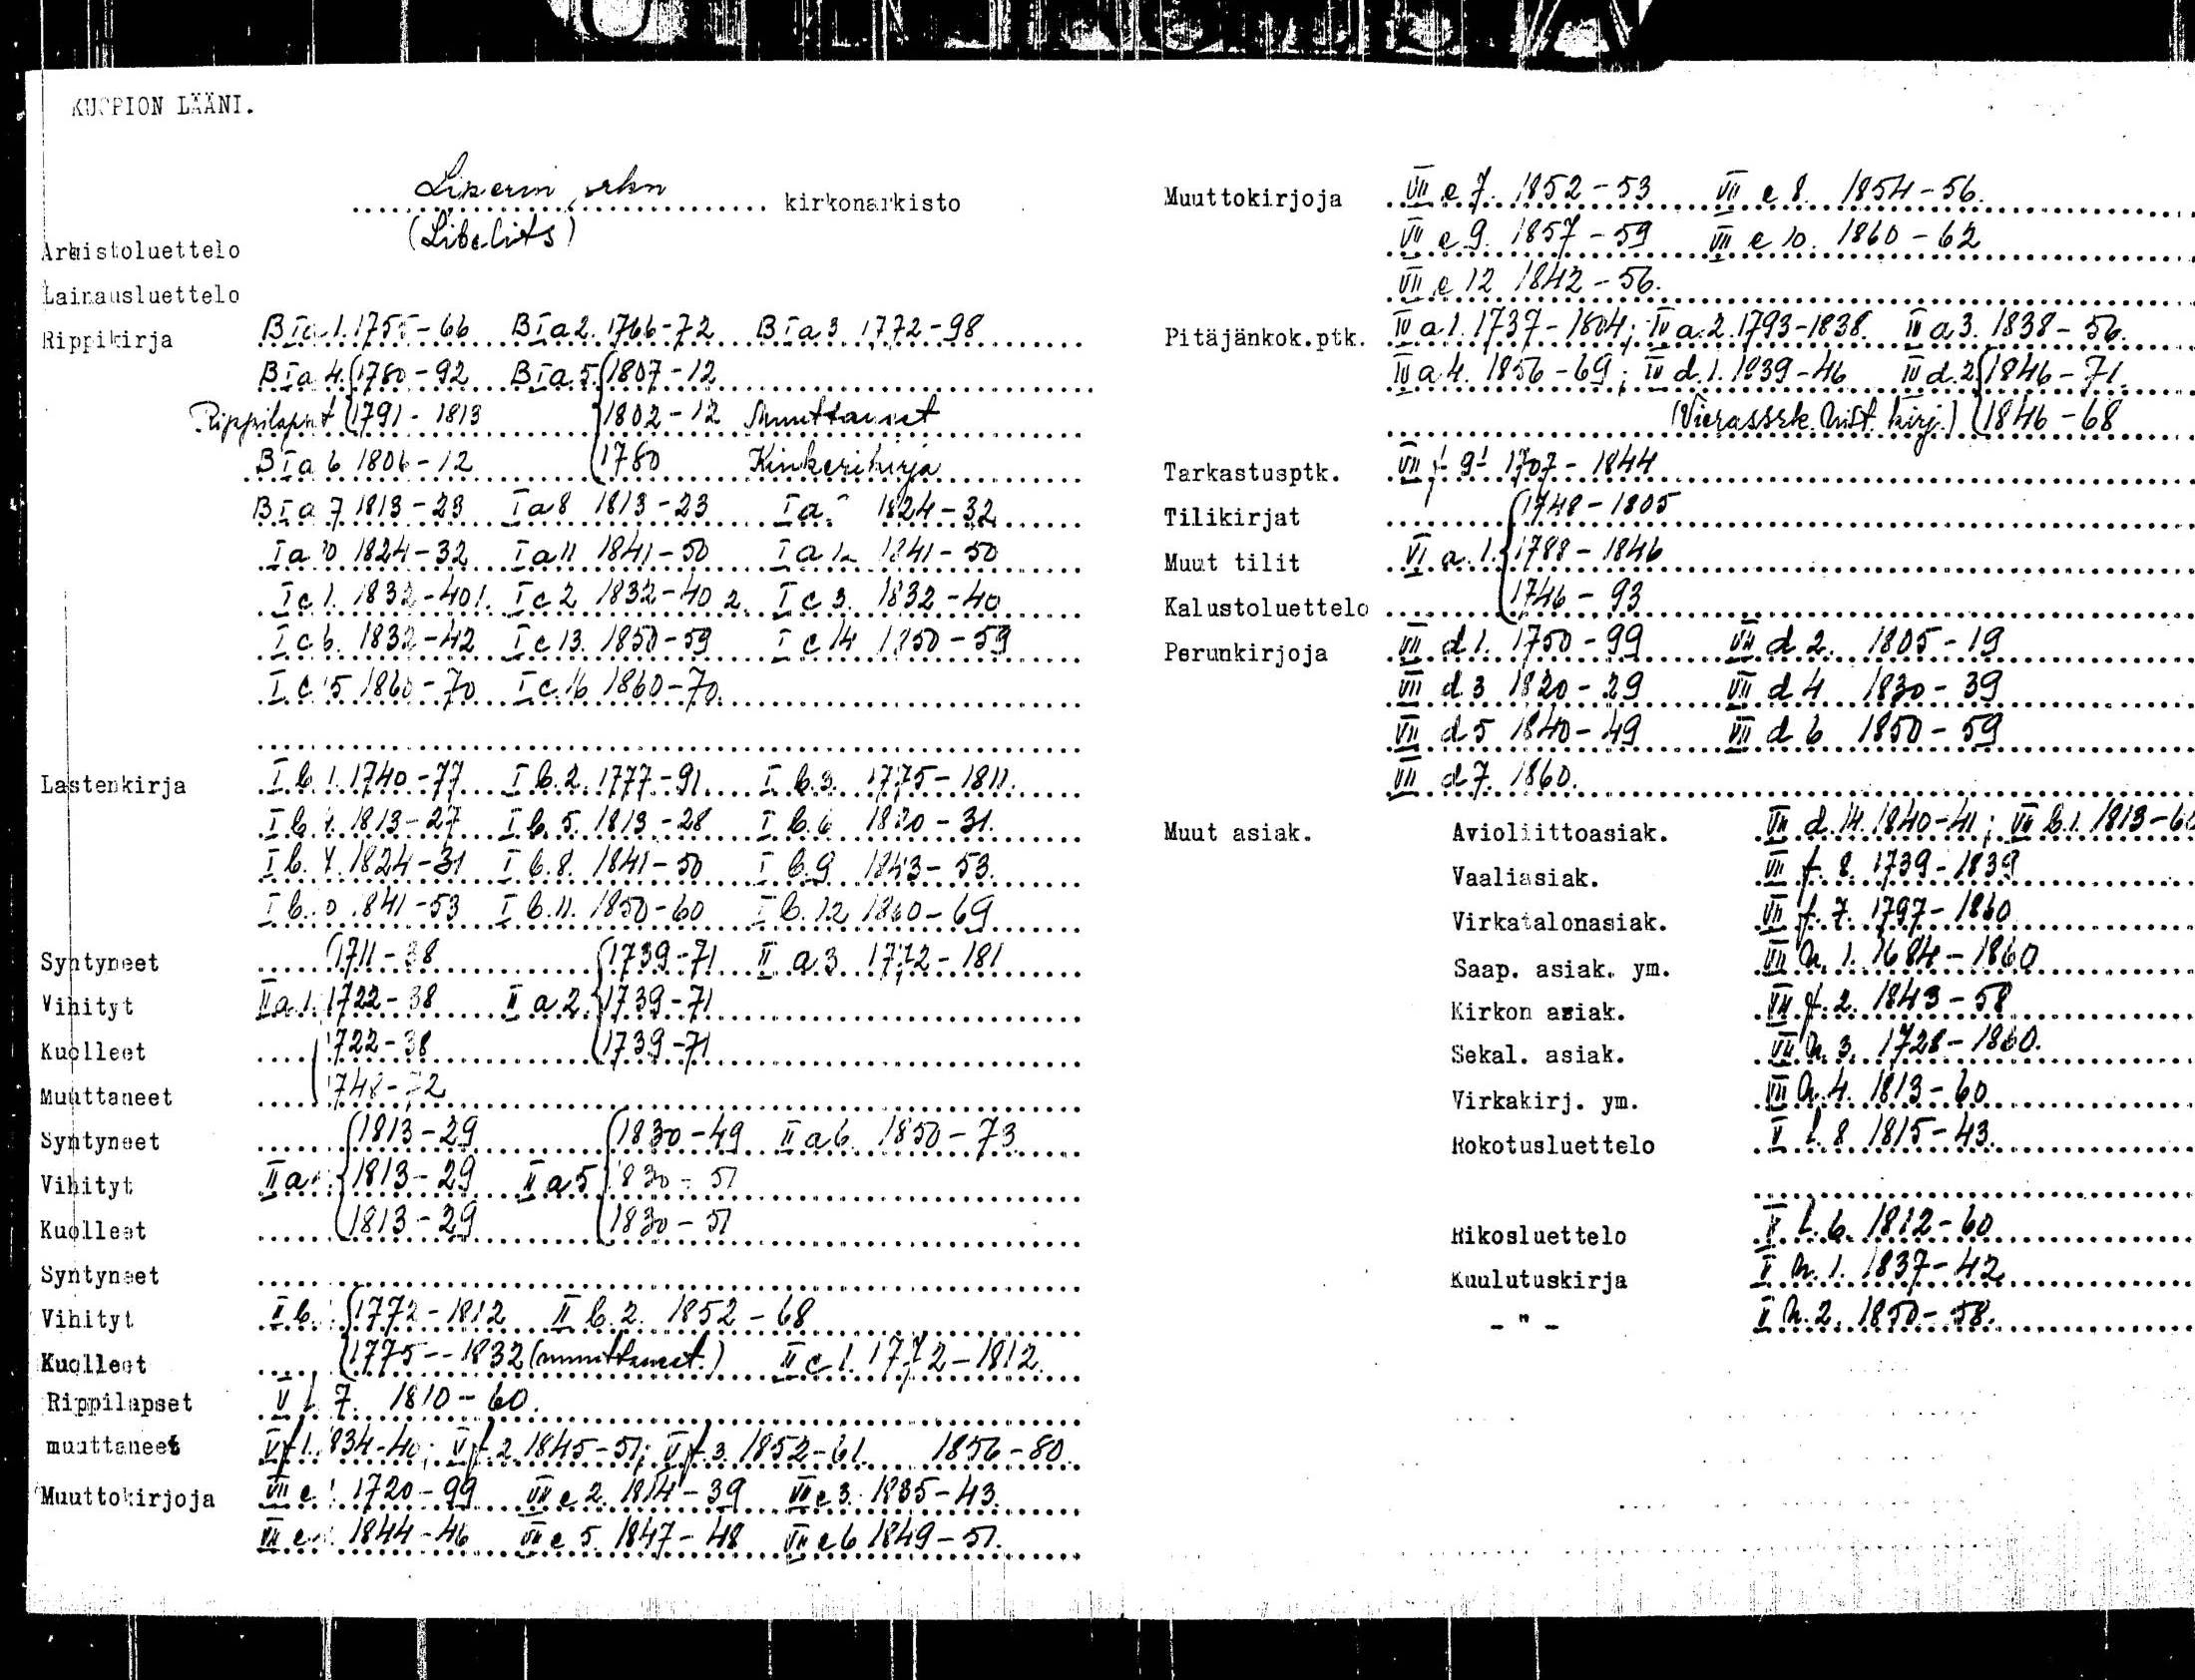 KUOPION LÄÄNI.
Liperin srkn kirkonarkisto
(Libelits)
Arkistoluettelo
Lainausluettelo
Rippikirja B I a 1. 1755-66 B I a 2. 1766-72 B I a 3 1772-98
B I a 4. 1780-92 B I a 5. 1807-12
Rippilapset 1791-1813 1802-12 Muuttaneet
B I a 6 1806-12 1780 Kinkerikirja
B I a 7 1813-23 I a 8 1813-23 I a 1824-32
I a 10 1824-32 I a 11 1841-50 I a 12 1841-50
I c 1. 1832-40 1. I c 2 1832-40 2. I c 3. 1832-40
I c 6. 1832-42 I c 13. 1850-59 I c 14 1850-59
I c 15 1860-70 I c 16 1860-70.
Lastenkirja I b. 1. 1740-77 I b. 2. 1777-91 I b. 3. 1775-1811.
I b. 4. 1813-27 I b. 5. 1813-28 I b. 6 1820-31.
I b. 7. 1824-31 I b. 8. 1841-50 I b. 9 1843-53.
I b. 10 1841-53 I b. 11. 1850-60 I b. 12 1860-69
Syntyneet 1711-38 1739-71 II a 3 1772-181
Vihityt II a 1. 1722-38 II a 2. 1739-71
Kuolleet 1722-38 1739-71
Muuttaneet 1748-72
Syntyneet 1813-29 1830-49 II a 6. 1850-73
Vihityt II a 1813-29 II a 5 1830-51
Kuolleet 1813-29 1830-51
Syntyneet
Vihityt II b. 1772-1812 II b. 2. 1852-68
Kuolleet 1775--1832 (muuttaneet.) II c 1. 1772-1812.
Rippilapset V f. 7. 1810-60.
muuttaneet V f 1. 1834-40; V f. 2 1845-51; V f. 3 1852-61. 1856-80.
Muuttokirjoja VII e 1 1720-99 VII e 2. 1814-39 VII e 3. 1835-43.
VII e 1844-46 VII e 5. 1847-48 VII e 6 1849-51.
Muuttokirjoja VII e 7. 1852-53 VII e 8. 1854-56.
VII e 9. 1857-59 VII e 10. 1860-62
VII e 12 1842-56.
Pitäjänkok.ptk. IV a 1. 1737-1804; IV a. 2. 1793-1838. IV a 3. 1838-56.
IV a 4. 1856-69; IV d. 1. 1839-46 IV d. 2. 1846-71.
(Vierassrk. hist. kirj.) 1846-68
Tarkastusptk. VII f 9 1 1707-1844
Tilikirjat 1748-1805
Muut tilit VI a. 1. 1788-1846
Kalustoluettelo 1746-93
Perunkirjoja VII d 1. 1750-99 VII d 2. 1805-19
VII d 3 1820-29 VII d 4 1830-39
VII d 5 1840-49 VII d 6 1850-59
VII d 7. 1860.
Muut asiak. Avioliittoasiak. VII d. 14. 1840-41; VII b. 1. 1813-60
Vaaliasiak. VII f. 8. 1739-1839
Virkatalonasiak. VII f. 7. 1797-1860
Saap. asiak. ym. VII h. 1. 1684-1860
Kirkon asiak. VII f. 2. 1843-58
Sekal. asiak. VII h. 3. 1728-1860.
Virkakirj. ym. VII h. 4. 1813-60
Rokotusluettelo V f. 8 1815-43.
Rikosluettelo V f. 6. 1812-60
Kuulutuskirja V h. 1. 1837-42
- " - V h. 2. 1850-58.